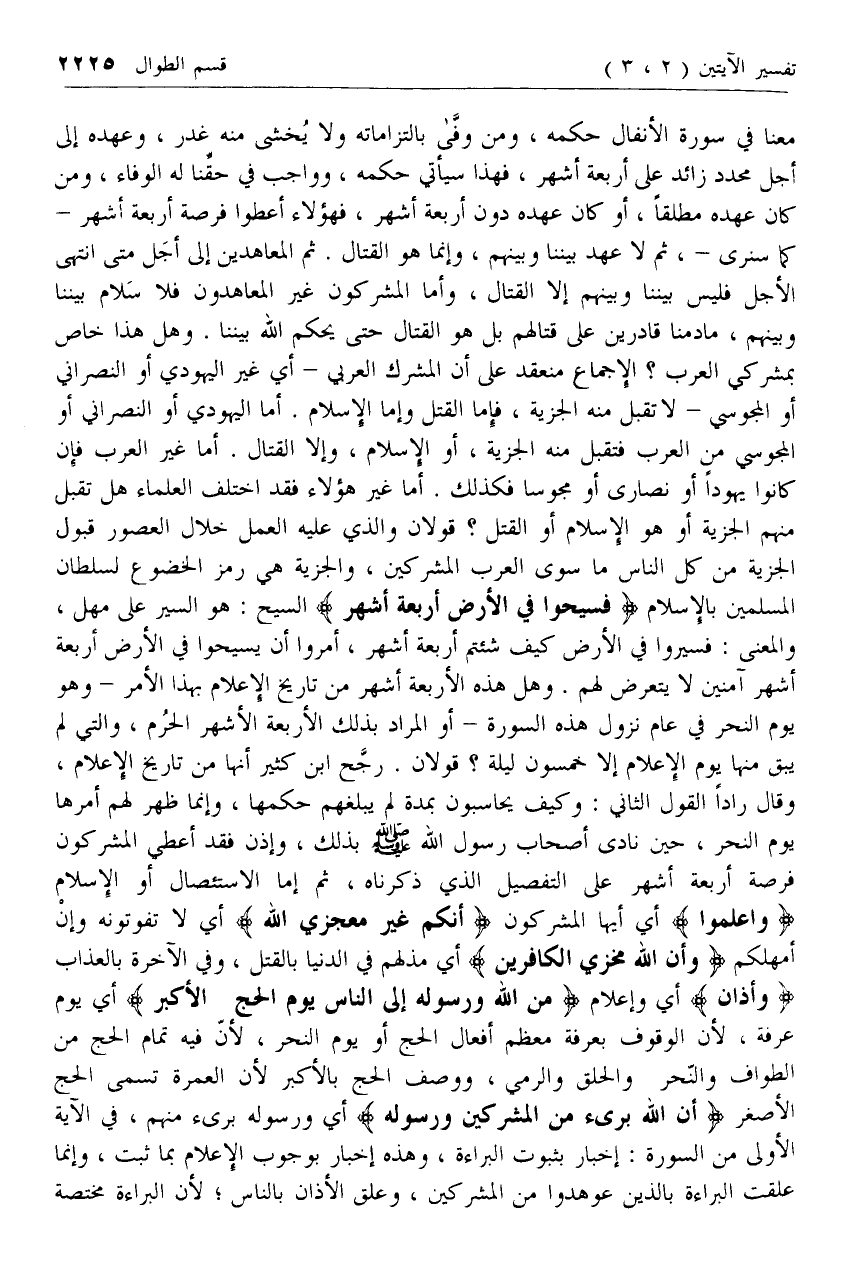 تفسير الآيتين ( ٢ ، ٣ )
قسم الطوال ٢٢٢٥
معنا في سورة الأنفال حكمه ، ومن وفَّىٰ بالتزاماته ولا يُخشى منه غدر ، وعهده إلى
أجل محدد زائد على أربعة أشهر ، فهذا سيأتي حكمه ، وواجب في حقِّنا له الوفاء ، ومن
كان عهده مطلقاً ، أو كان عهده دون أربعة أشهر ، فهؤلاء أعطوا فرصة أربعة أشهر –
كما سنرى – ، ثم لا عهد بيننا وبينهم ، وإنما هو القتال . ثم المعاهدين إلى أجَل متى انتهى
الأجل فليس بيننا وبينهم إلا القتال ، وأما المشركون غير المعاهدون فلا سَلام بيننا
وبينهم ، مادمنا قادرين على قتالهم بل هو القتال حتى يحكم الله بيننا . وهل هذا خاص
بمشركي العرب ؟ الإجماع منعقد على أن المشرك العربي – أي غير اليهودي أو النصراني
أو المجوسي – لا تقبل منه الجزية ، فإما القتل وإما الإسلام . أما اليهودي أو النصراني أو
المجوسي من العرب فتقبل منه الجزية ، أو الإسلام ، وإلا القتال . أما غير العرب فإن
كانوا يهوداً أو نصارى أو مجوسا فكذلك . أما غير هؤلاء فقد اختلف العلماء هل تقبل
منهم الجزية أو هو الإسلام أو القتل ؟ قولان والذي عليه العمل خلال العصور قبول
الجزية من كل الناس ما سوى العرب المشركين ، والجزية هي رمز الخضوع لسلطان
المسلمين بالإسلام ﴿ فسيحوا في الأرض أربعة أشهر ﴾ السيح : هو السير على مهل ،
والمعنى : فسيروا في الأرض كيف شئتم أربعة أشهر ، أمروا أن يسيحوا في الأرض أربعة
أشهر آمنين لا يتعرض لهم . وهل هذه الأربعة أشهر من تاريخ الإعلام بهذا الأمر – وهو
يوم النحر في عام نزول هذه السورة – أو المراد بذلك الأربعة الأشهر الحرُم ، والتي لم
يبق منها يوم الإعلام إلا خمسون ليلة ؟ قولان . رجَّح ابن كثير أنها من تاريخ الإعلام ،
وقال راداً القول الثاني : وكيف يحاسبون بمدة لم يبلغهم حكمها ، وإنما ظهر لهم أمرها
يوم النحر ، حين نادى أصحاب رسول الله ﷺ بذلك ، وإذن فقد أعطي المشركون
فرصة أربعة أشهر على التفصيل الذي ذكرناه ، ثم إما الاستئصال أو الإسلام
﴿ واعلموا ﴾ أي أيها المشركون ﴿ أنكم غير معجزي الله ﴾ أي لا تفوتونه وإنْ
أمهلكم ﴿ وأن الله مخزي الكافرين ﴾ أي مذلهم في الدنيا بالقتل ، وفي الآخرة بالعذاب
﴿ وأذان ﴾ أي وإعلام ﴿ من الله ورسوله إلى الناس يوم الحج الأكبر ﴾ أي يوم
عرفة ، لأن الوقوف بعرفة معظم أفعال الحج أو يوم النحر ، لأنّ فيه تمام الحج من
الطواف والنّحر والحلق والرمي ، ووصف الحج بالأكبر لأن العمرة تسمى الحج
الأصغر ﴿ أن الله برىء من المشركين ورسوله ﴾ أي ورسوله برىء منهم ، في الآية
الأولى من السورة : إخبار بثبوت البراءة ، وهذه إخبار بوجوب الإعلام بما ثبت ، وإنما
علقت البراءة بالذين عوهدوا من المشركين ، وعلق الأذان بالناس ؛ لأن البراءة مختصة